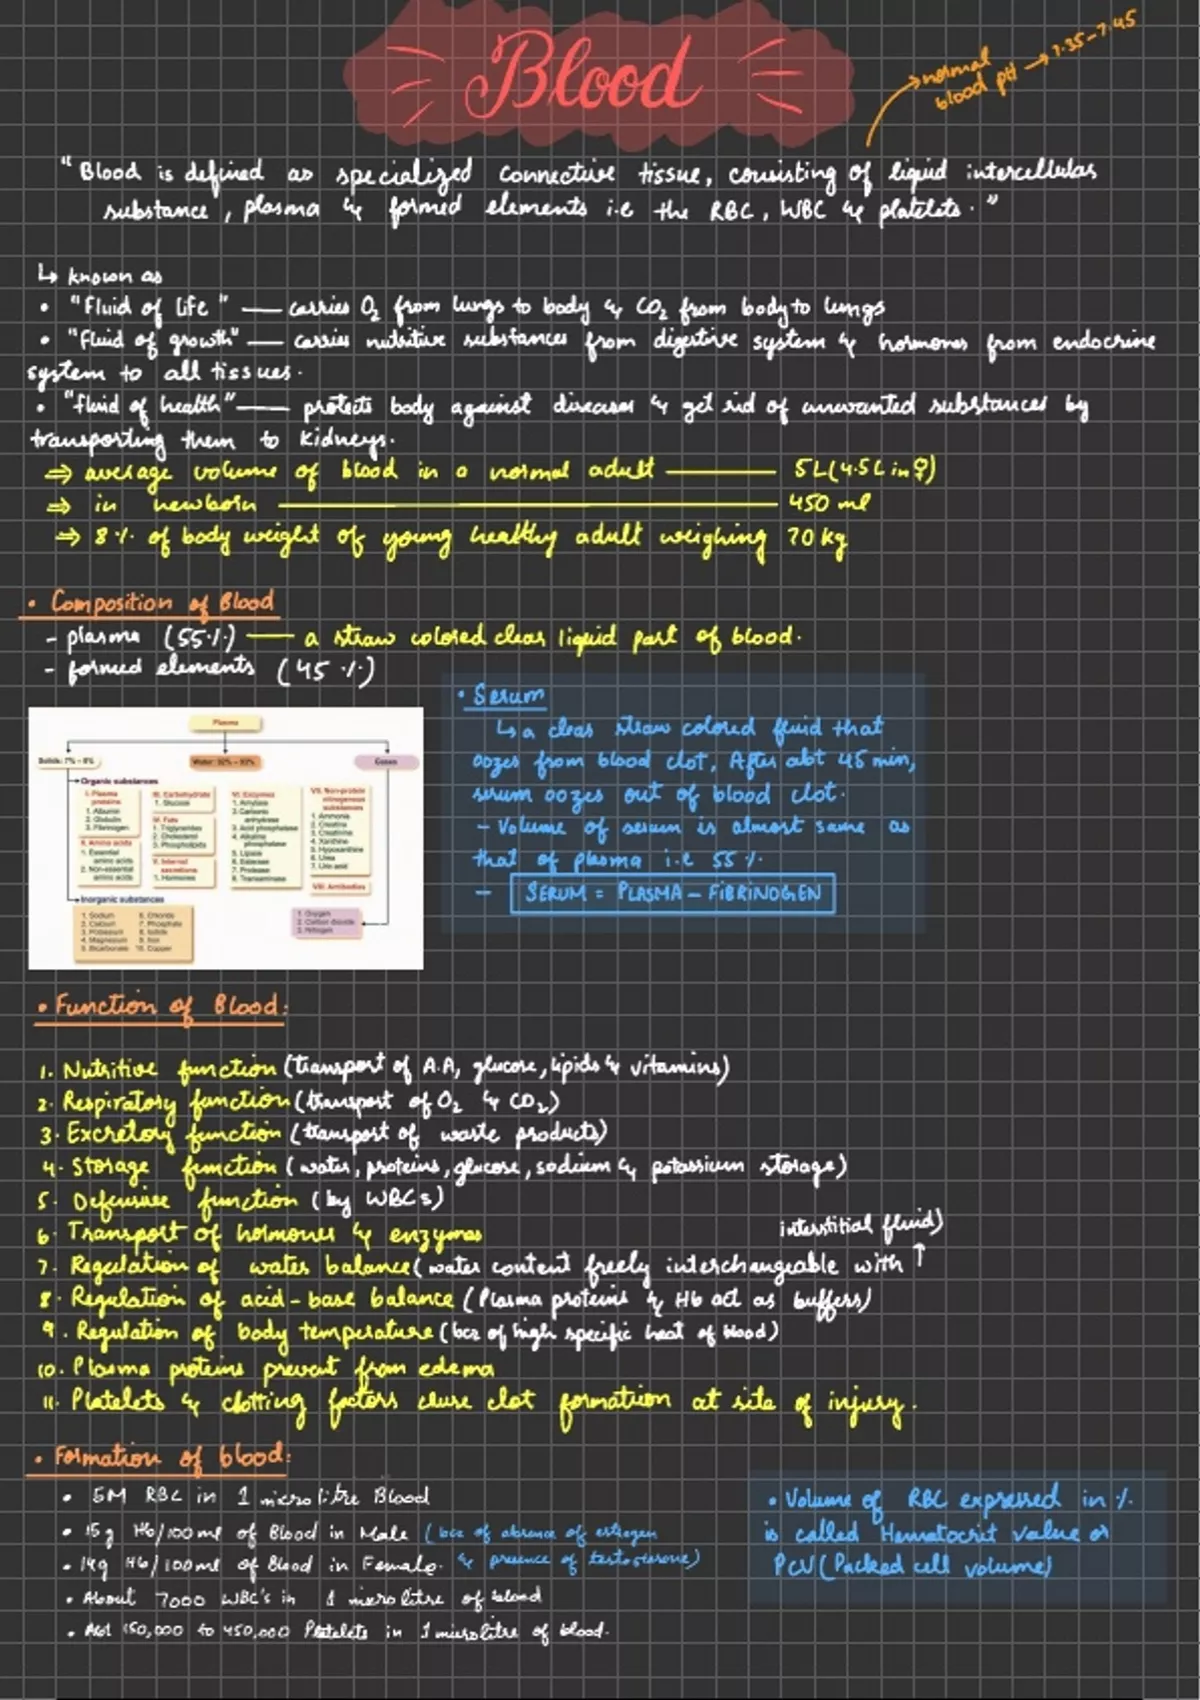 Blood
normal
blood pH → 7.35-7.45
"Blood is defined as specialized connective tissue, consisting of liquid intercellular
substance, plasma & formed elements i.e the RBC, WBC & platelets."
↳ known as
• "Fluid of life" — carries O₂ from lungs to body & CO₂ from body to lungs
• "Fluid of growth" — carries nutritive substances from digestive system & hormones from endocrine
system to all tissues.
• "fluid of health" — protects body against diseases & get rid of unwanted substances by
transporting them to kidneys.
⇒ average volume of blood in a normal adult — 5L (4.5L in ♀)
⇒ in newborn — 450 ml
⇒ 8% of body weight of young healthy adult weighing 70 kg
• Composition of Blood
- plasma (55%) — a straw colored clear liquid part of blood.
- formed elements (45%)
Plasma
Solids: 7% – 8%
Water: 92% – 93%
Gases
Organic substances
I. Plasma proteins
1. Albumin
2. Globulin
3. Fibrinogen
II. Amino acids
1. Essential amino acids
2. Non-essential amino acids
III. Carbohydrate
1. Glucose
IV. Fats
1. Triglycerides
2. Cholesterol
3. Phospholipids
V. Internal secretions
1. Hormones
VI. Enzymes
1. Amylase
2. Carbonic anhydrase
3. Acid phosphatase
4. Alkaline phosphatase
5. Lipase
6. Esterase
7. Protease
8. Transaminase
VII. Non-protein nitrogenous substances
1. Ammonia
2. Creatine
3. Creatinine
4. Xanthine
5. Hypoxanthine
6. Urea
7. Uric acid
VIII. Antibodies
Inorganic substances
1. Sodium
2. Calcium
3. Potassium
4. Magnesium
5. Bicarbonate
6. Chloride
7. Phosphate
8. Iodide
9. Iron
10. Copper
1. Oxygen
2. Carbon dioxide
3. Nitrogen
• Serum
↳ a clear straw colored fluid that
oozes from blood clot, After abt 45 min,
serum oozes out of blood clot.
- Volume of serum is almost same as
that of plasma i.e 55%.
- SERUM = PLASMA – FIBRINOGEN
• Function of Blood:
1. Nutritive function (transport of A.A, glucose, lipids & vitamins)
2. Respiratory function (transport of O₂ & CO₂)
3. Excretory function (transport of waste products)
4. Storage function (water, proteins, glucose, sodium & potassium storage)
5. Defensive function (by WBCs)
6. Transport of hormones & enzymes
7. Regulation of water balance (water content freely interchangeable with ↑ interstitial fluid)
8. Regulation of acid-base balance (Plasma proteins & Hb act as buffers)
9. Regulation of body temperature (bcz of high specific heat of blood)
10. Plasma proteins prevent from edema
11. Platelets & clotting factors cause clot formation at site of injury.
• Formation of blood:
• 5M RBC in 1 microlitre Blood
• 15g Hb/100ml of Blood in Male (bcz of absence of estrogen
• 14g Hb/100ml of Blood in Female. & presence of testosterone)
• About 7000 WBC's in 1 microlitre of blood
• Abt 150,000 to 450,000 Platelets in 1 microlitre of blood.
• Volume of RBC expressed in %
is called Hematocrit value or
PCV (Packed cell volume)